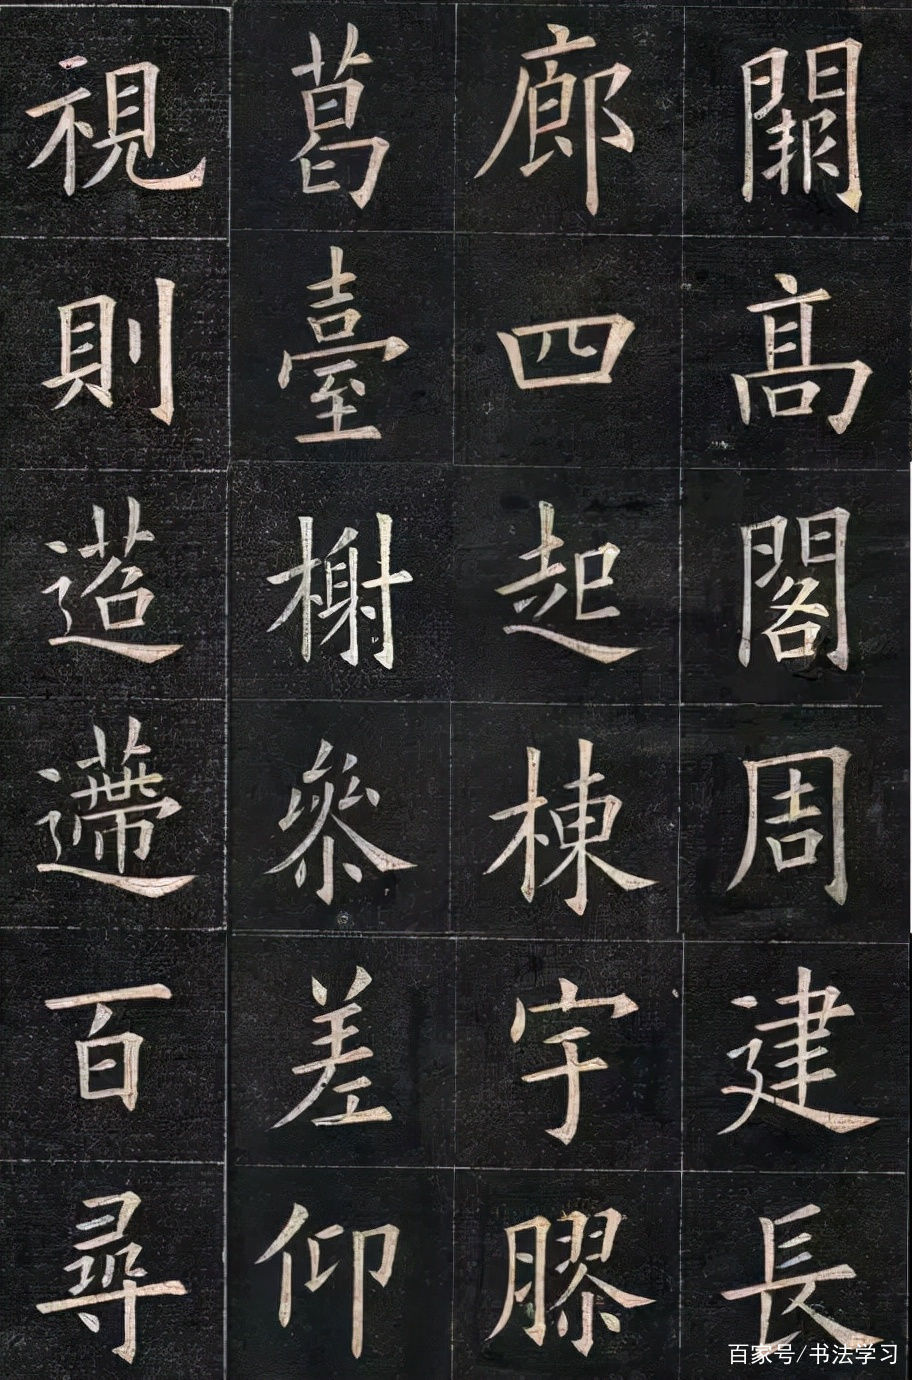 闕髙閣周建長
廊四起棟宇膠
葛臺榭參差仰
視則迢遰百尋
百家号/书法学习